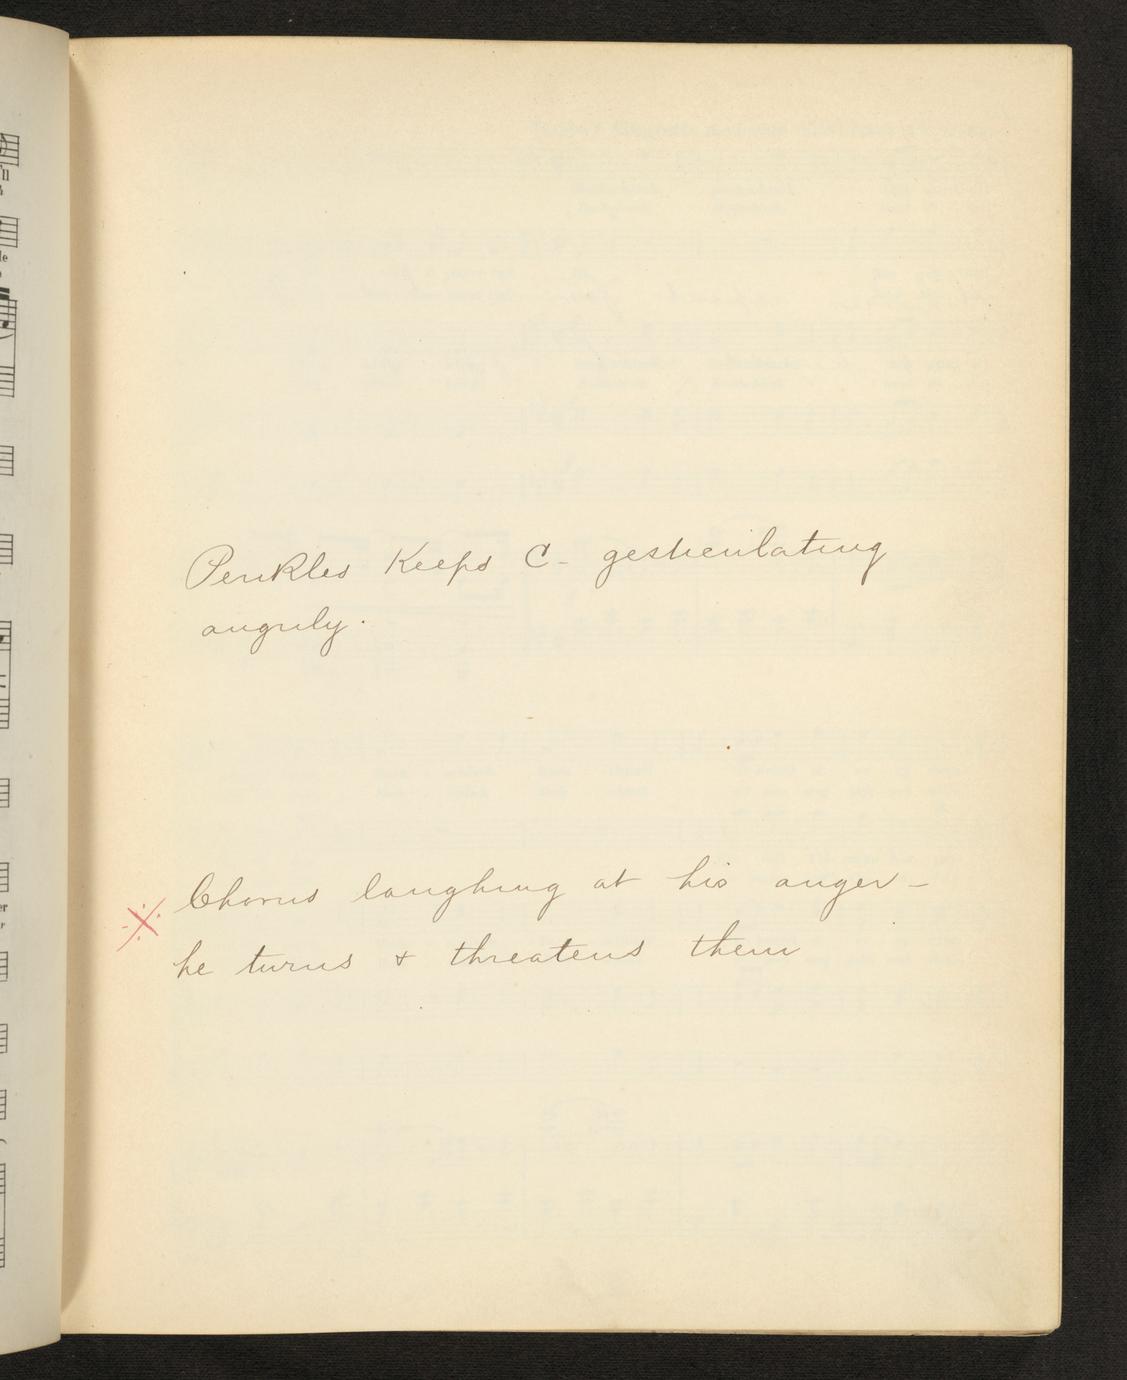 Perikles Keeps C - gesticulating
angrily.
Chorus laughing at his anger -
he turns & threatens them